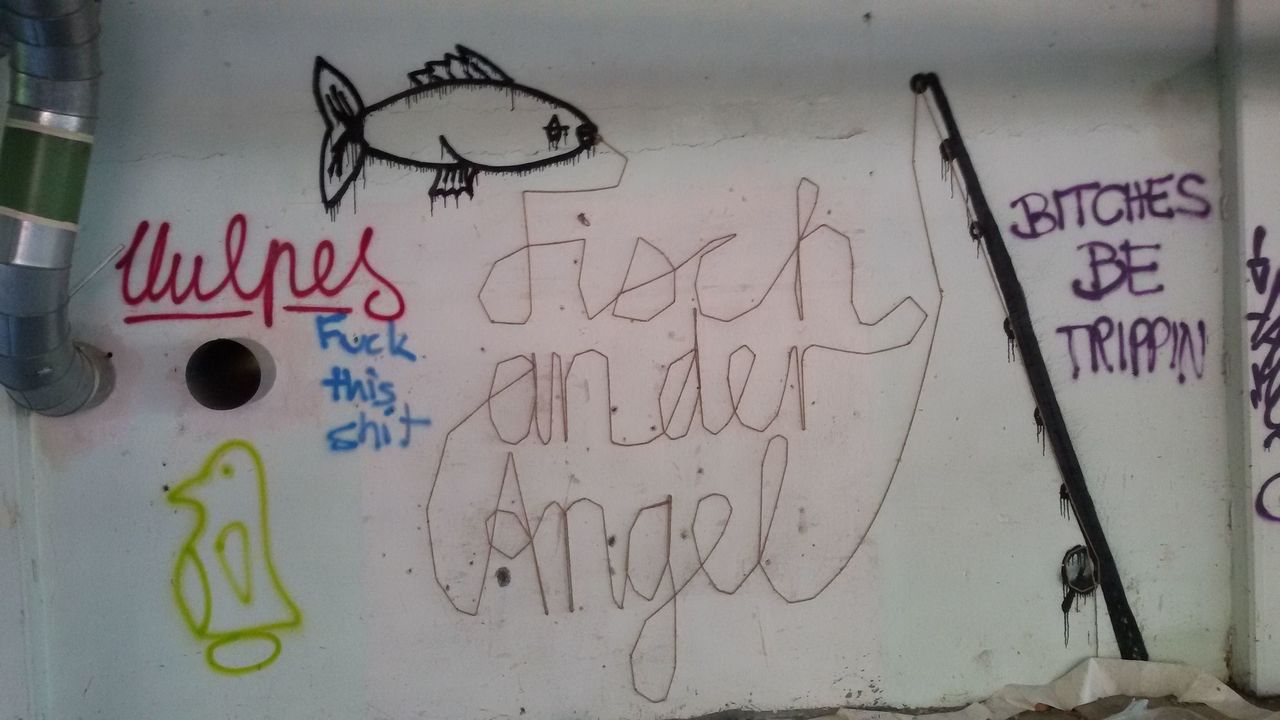 Vulpes
Fuck
this
shit
Fisch
an der
Angel
BITCHES
BE
TRIPPIN